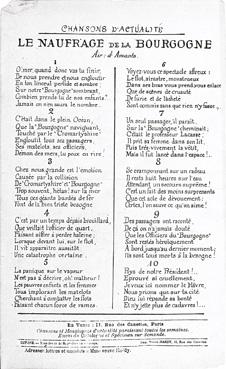 CHANSONS D'ACTUALITÉ
LE NAUFRAGE DE LA BOURGOGNE
Air: d'Amants.
1
O mer, quand donc vas tu finir,
De nous prendre et nous engloutir
En ton linceul perfide et sombre;
Sur notre "Bourgogne" sombrant
Combien prends tu de nos enfants
Jamais on n'en saura le nombre.
2
C'était dans le plein Océan,
Que la "Bourgogne" naviguant,
Touché par le "Cromartyshire"
Engloutit tous ses passagers,
Ses matelots, ses officiers
Démon des mers, tu peux en rire
3
Chez nous grande est l'émotion
Causée par la collision
De "Cromartyshire" et "Bourgogne"
Trop souvent, hélas! sur la mer
Tous ces géants bardés de fer
Font de la bien triste besogne
4
C'est par un temps depuis brouillard,
Que veillait l'officier de quart,
Faisant siffler à perdre haleine;
Lorsque devant lui, sur le flot,
Il vit apparaître aussitôt
Une catastrophe certaine.
5
La panique sur le vapeur
N'est pas à décrire, oh! malheur!
Les pauvres enfants et les femmes
Tous implorant les matelots
Cherchant à combattre les flots
Faisant chacun force de rames.
6
Voyez-vous ce spectacle affreux:
Le flot, sinistre, monstrueux
Dans ses bras vous prend, vous enlace
Que de scènes de cruauté
De furie et de lâcheté
Sont commises sans que rien n'y fasse.
7
Un seul passager, il paraît,
Sur la "Bourgogne" cheminait,
C'était le professeur Lacasse
Il prit sa femme dans son lit,
Puis très vivement la vêtit,
Mais il fut lancé dans l'espace!..
8
Se cramponnant sur un radeau
Il resta huit heures sur l'eau
Attendant un secours suprême,
C'est un fait des moins surprenants
Que cet acte de dévouement;
Certes, l'on sauve ce qu'on aime!
9
Des passagers ont raconté,
De ça on n'a jamais douté
Que les Officiers du "Bourgogne"
Sont restés héroïquement
A bord, jusqu'au dernier moment;
Ils sont tous morts à la besogne!
10
Pays de notre Président!..
Eprouvé si cruellement,
Je veux ici nommer le Hâvre,
Nous prions que sur ta cité
Dieu ici répande sa bonté
Et n'y jette plus de cadavres!...
En Vente: 11, Rue des Canettes, Paris
Chansons et Monologues d'actualité paraissant toutes les semaines.